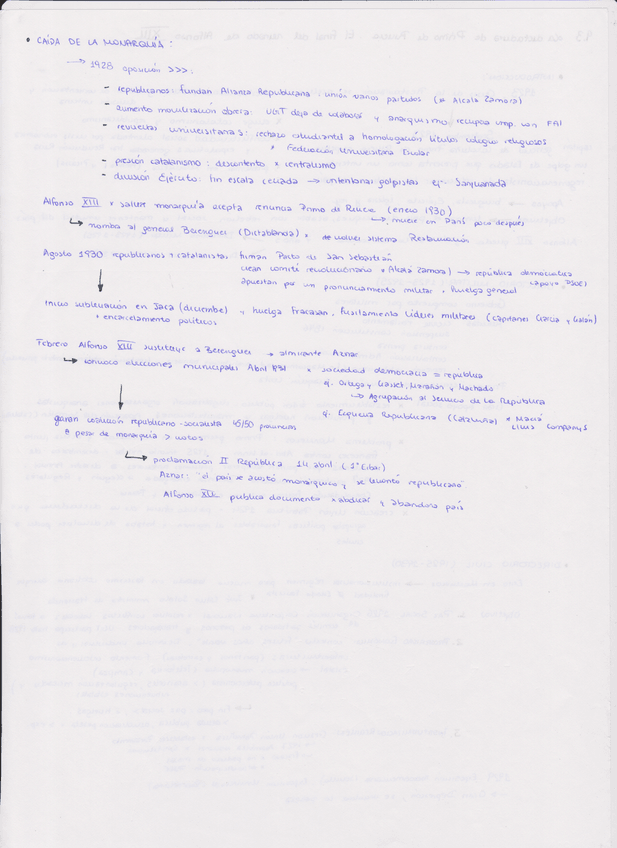 • CAÍDA DE LA MONARQUÍA :
→ 1928 oposición >>> :
- republicanos: fundan Alianza Republicana : unión varios partidos (x Alcalá Zamora)
- aumento movilización obrera: UGT deja de colaborar y anarquismo recupera imp. con FAI
- revueltas universitarias: rechazo estudiantil a homologación títulos colegios religiosos
x Federación Universitaria Escolar
- presión catalanismo : descontento x centralismo
- división Ejército: fin escala cerrada → intentonas golpistas ej. Sanjuanada
Alfonso XIII x salvar monarquía acepta renuncia Primo de Rivera (enero 1930)
↳ muere en París poco después
↳ nombra al general Berenguer (Dictablanda) x devolver sistema Restauración
Agosto 1930 republicanos y catalanistas firman Pacto de San Sebastián
crean comité revolucionario x Alcalá Zamora) → república democrática
apuestan por un pronunciamiento militar y huelga general
↳ apoyo PSOE)
Inicio sublevación en Jaca (diciembre) y huelga fracasan, fusilamiento líderes militares (capitanes García y Galán)
+ encarcelamiento políticos
Febrero Alfonso XIII sustituye a Berenguer → almirante Aznar
↳ convoca elecciones municipales Abril 1931 x sociedad democracia = república
ej. Ortega y Gasset, Marañón y Machado
↳ Agrupación al Servicio de la República
ej. Esquerra Republicana (Cataluña) x Maciá
Lluis Companys
ganan coalición republicano-socialista 45/50 provincias
A pesar de monarquía > votos
↳ proclamación II República 14 abril (1º Eibar)
Aznar: "el país se acostó monárquico y se levantó republicano"
Alfonso XIII publica documento x abdicar y abandona país